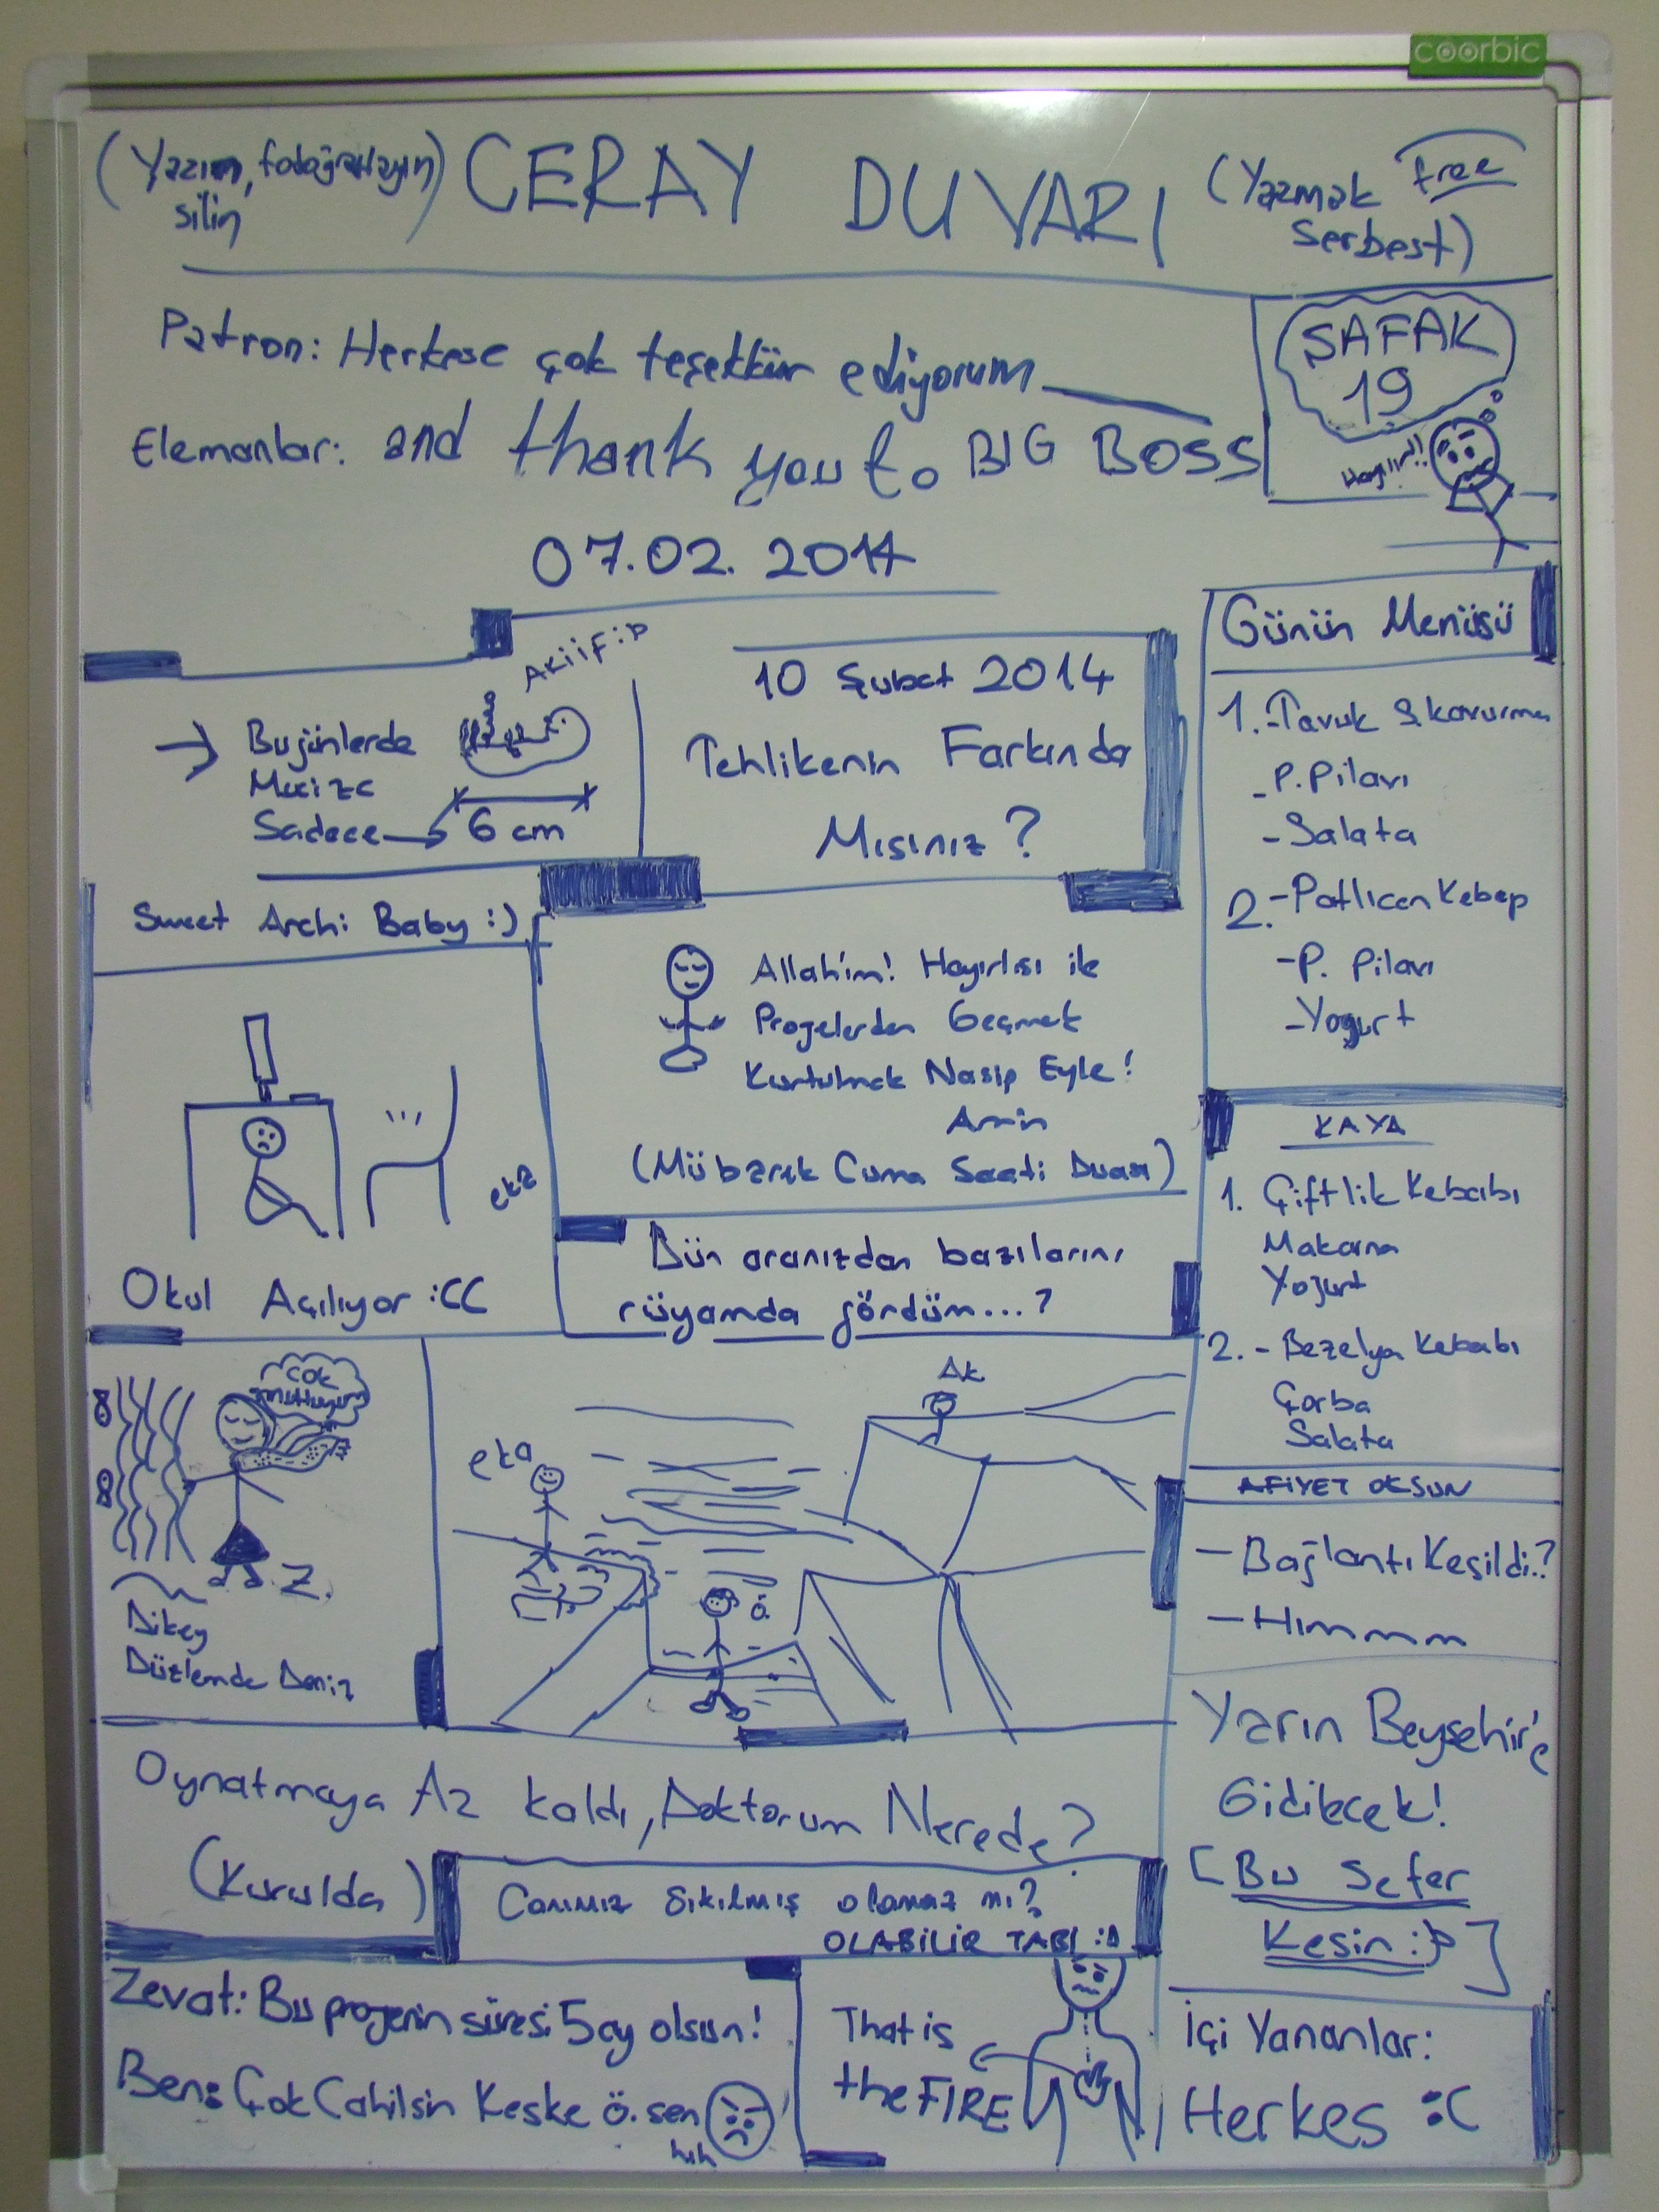 coorbic
(Yazın, fotoğraflayın
silin)
CERAY DUVARI
(Yazmak free
Serbest)
Patron: Herkese çok teşekkür ediyorum
Elemanlar: and thank you to BIG BOSS
07.02.2014
ŞAFAK
19
Hayıır!!
AKiiF:D
→ Bugünlerde
Mucize
Sadece → 6 cm
Sweet Archi Baby :)
10 Şubat 2014
Tehlikenin Farkında
Mısınız?
Günün Menüsü
1.-Tavuk S.kavurma
-P.Pilavı
-Salata
2.-Patlıcan Kebap
-P. Pilavı
-Yogurt
Allah'ım! Hayırlısı ile
Projelerden Geçmek
Kurtulmak Nasip Eyle!
Amin
(Mübarek Cuma Saati Duası)
eka
Okul Açılıyor :CC
Dün aranızdan bazılarını
rüyamda gördüm...?
KAYA
1. Çiftlik Kebabı
Makarna
Yoğurt
2.- Bezelya Kebabı
Çorba
Salata
AFİYET OLSUN
ÇOK
mutluyum
Z.
Dikey
Düzlemde Deniz
eka
AK
Ö.
- Bağlantı Kesildi?
- Hımmm
Yarın Beyşehir'e
Gidilecek!
[Bu Sefer
Kesin :D]
Oynatmaya Az kaldı, Doktorum Nerede?
(Kurulda)
Canımız Sıkılmış olamaz mı?
OLABİLİR TABİ :D
Zevat: Bu projenin süresi 5 ay olsun!
Ben: Çok Cahilsin Keske ö.sen
hıh
That is
the FIRE
İçi Yananlar:
Herkes :C